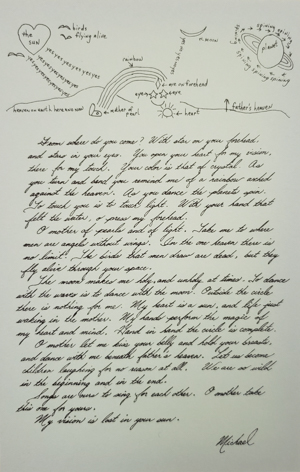 the sun
birds flying alive
yesyesyesyesyesyesyes
yesyesyesyesyesyesyes
yesyesyesyesyesyes
rainbow
moon
planet
spining spining
spining spining spining
on forehead
open
eyes
heaven on earth here and now
mother of pearl
heart
↑ father's heaven
From where do you come? With star on your forehead,
and stars in your eyes. You open your heart for my vision,
there for my touch. Your color is that of crystal. As
you turn and bend you remind me of a rainbow arched
against the heaven. As you dance the planets spin.
To touch you is to touch light. With your hand that
felt the water, you press my forehead.
O mother of pearls and of light. Take me to where
men are angels without wings. In the one heaven there is
no limit. The birds that men draw are dead, but they
fly alive through your space.
The moon makes me holy, and unholy at times. To dance
with the waves is to dance with the moon. Outside the circle
there is nothing for me. My heart is a sun, and life just
waking in the mother. My hands perform the magic of
my heart and mind. Hand in hand the circle is complete.
O mother let me kiss your belly and hold your breasts,
and dance with me beneath father's heaven. Let us become
children laughing for no reason at all. We are so wild
in the beginning and in the end.
Songs are ours to sing for each other. O mother take
this one for yours.
My vision is lost in your sun.
Michael